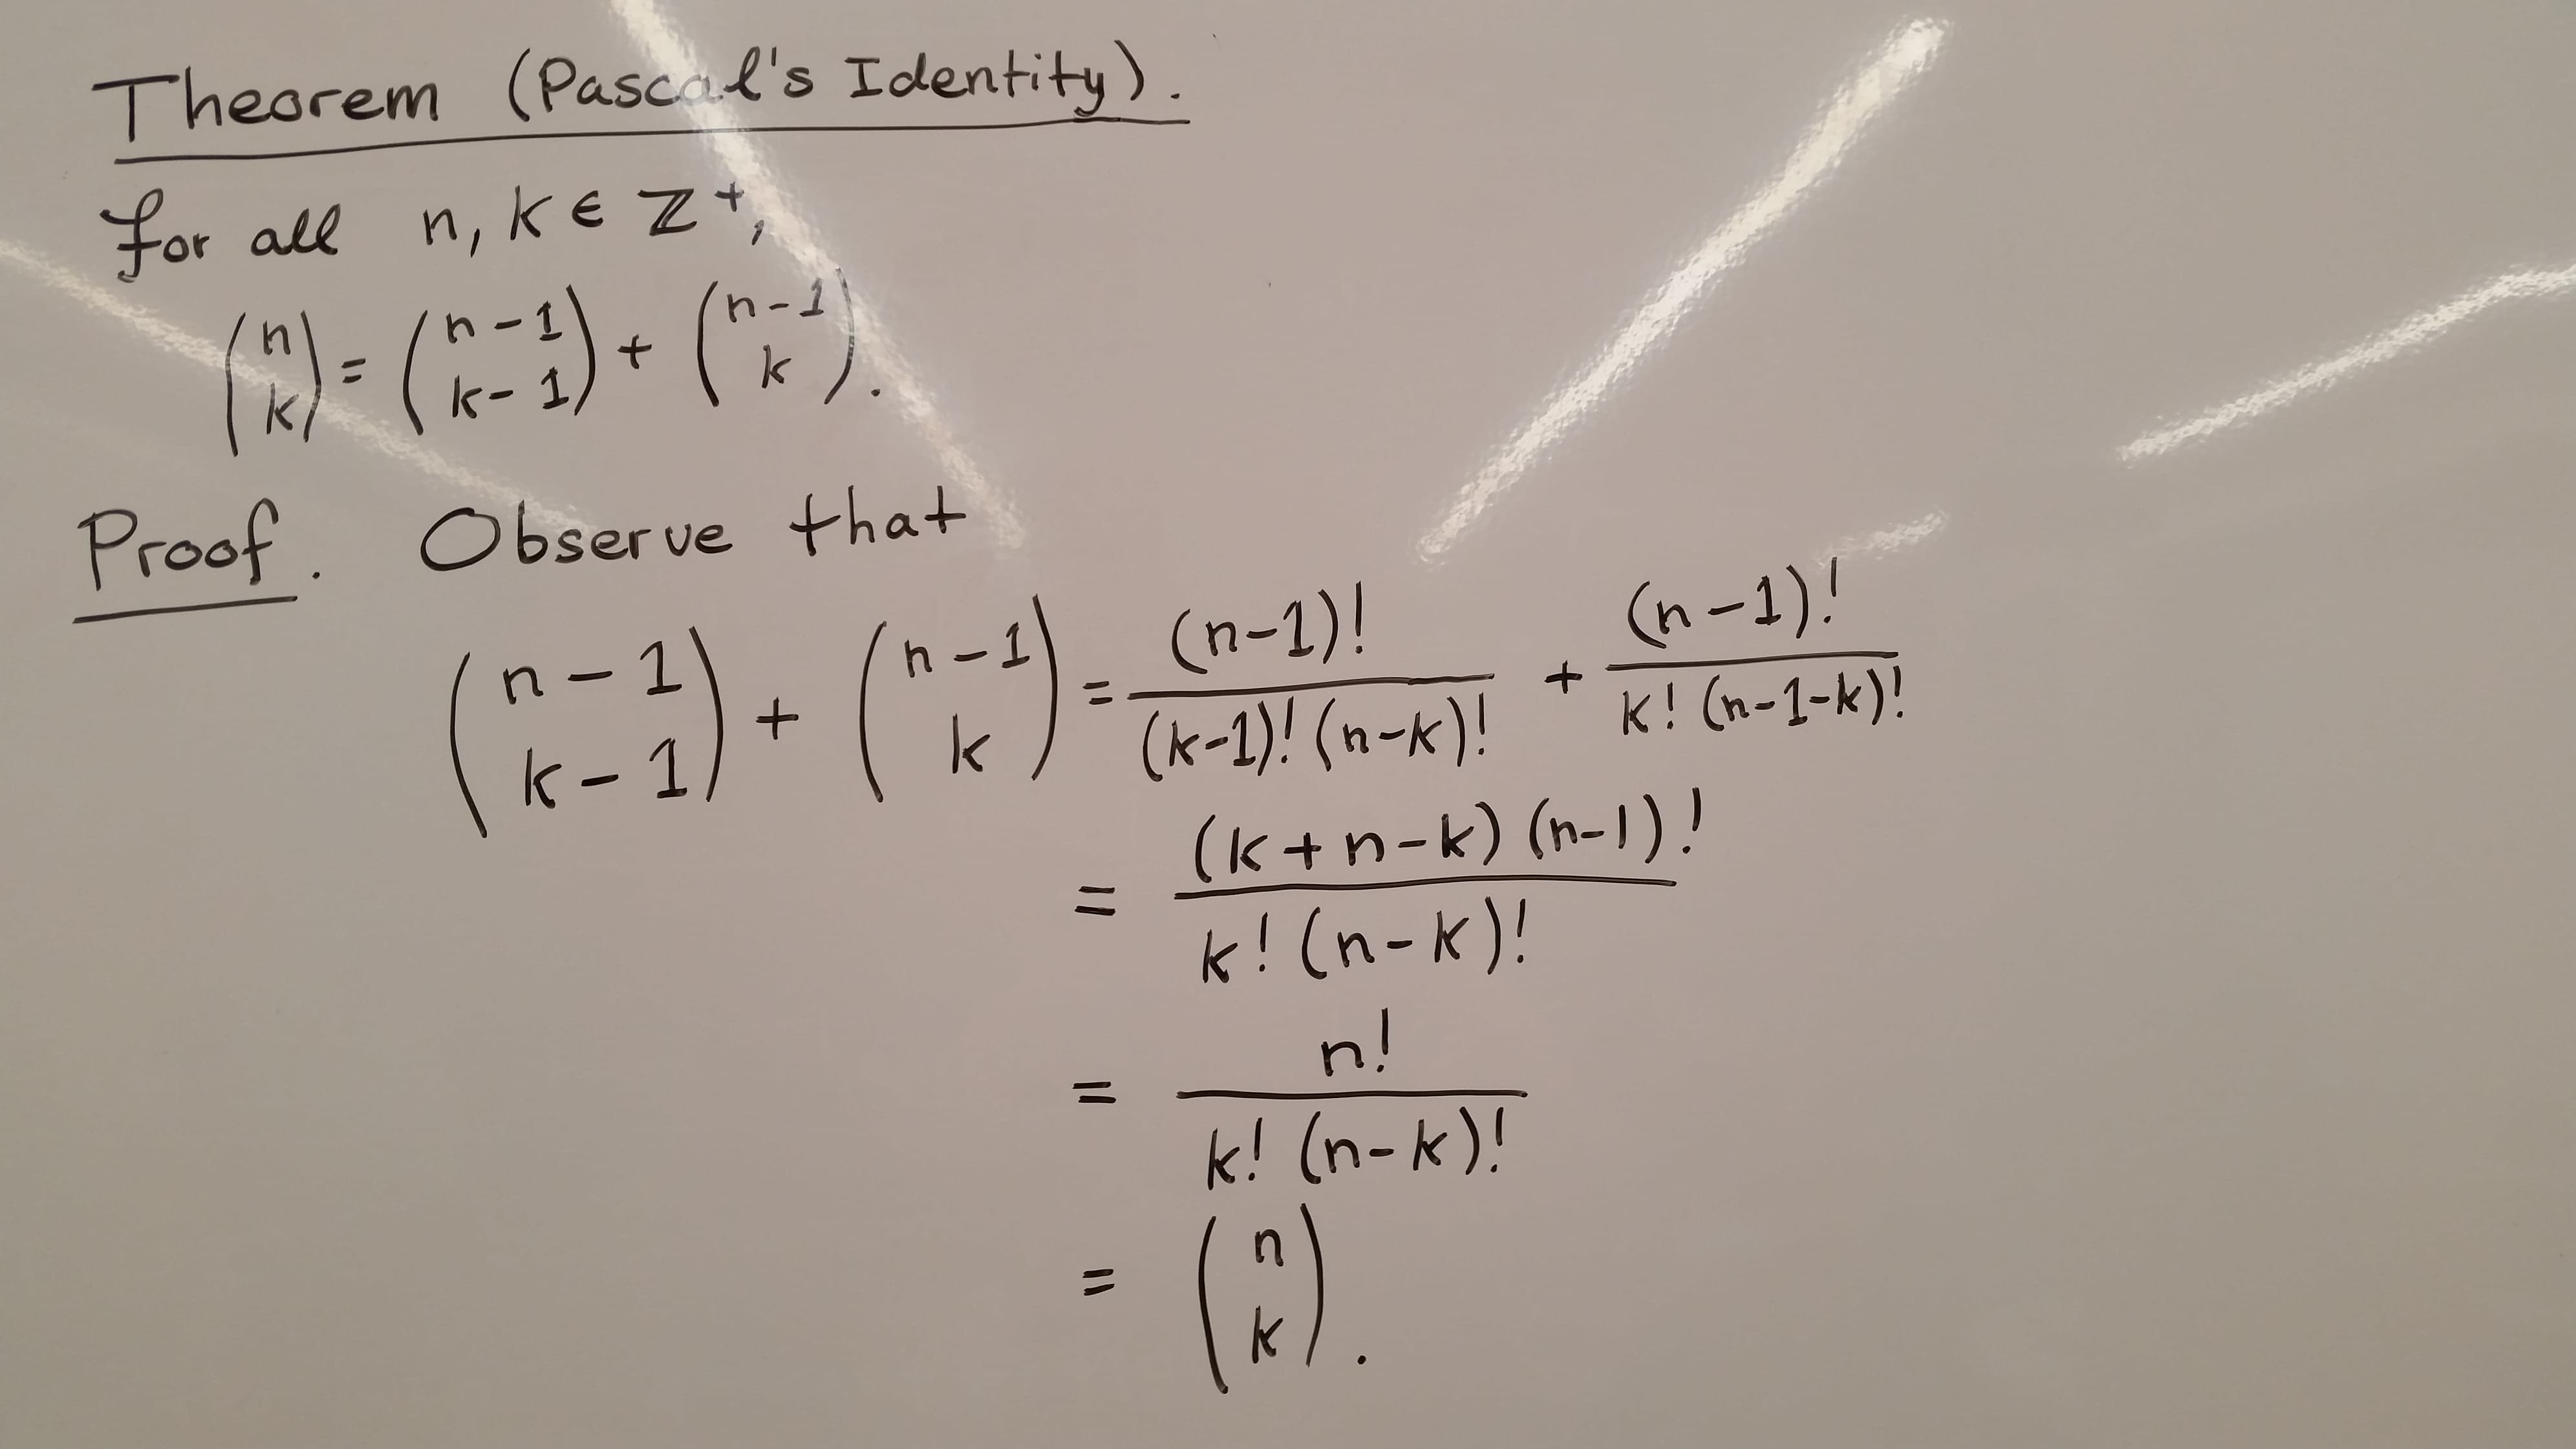 Theorem (Pascal's Identity).
for all n, k ∈ ℤ⁺,
$\binom{n}{k} = \binom{n-1}{k-1} + \binom{n-1}{k}.$
Proof. Observe that
$\binom{n-1}{k-1} + \binom{n-1}{k} = \frac{(n-1)!}{(k-1)!(n-k)!} + \frac{(n-1)!}{k!(n-1-k)!}$
$= \frac{(k+n-k)(n-1)!}{k!(n-k)!}$
$= \frac{n!}{k!(n-k)!}$
$= \binom{n}{k}.$